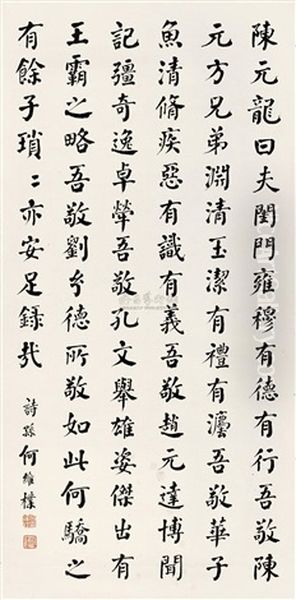 陳元龍曰夫閨門雍穆有德有行吾敬陳
元方兄弟淵清玉潔有禮有灋吾敬華子
魚清脩疾惡有識有義吾敬趙元達博聞
記彊奇逸卓犖吾敬孔文舉雄姿傑出有
王霸之略吾敬劉玄德所敬如此何驕之
有餘子瑣〻亦安足錄哉
詩孫何維樸